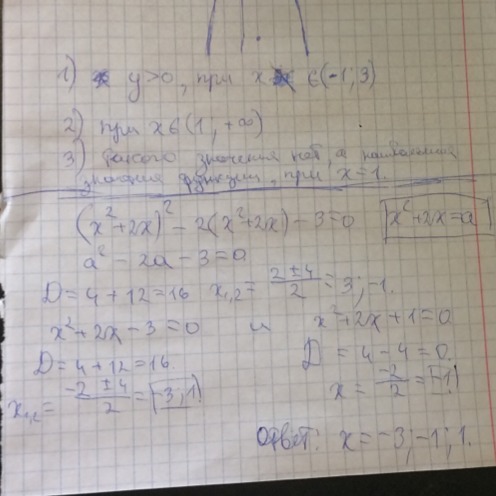 1) y>0, при x ∈(-1; 3)
2) при x∈(1; +∞)
3) такого значения нет, а наибольшее
значение функции, при x=1.
(x²+2x)² - 2(x²+2x) - 3=0 x²+2x=a
a² - 2a - 3=0
D=4+12=16 x₁,₂= (2±4)/2 = 3; -1.
x²+2x-3=0 и x²+2x+1=0
D=4+12=16. D = 4-4=0.
x₁,₂= (-2±4)/2 = -3; 1. x = -2/2 = -1.
Ответ: x=-3; -1; 1.